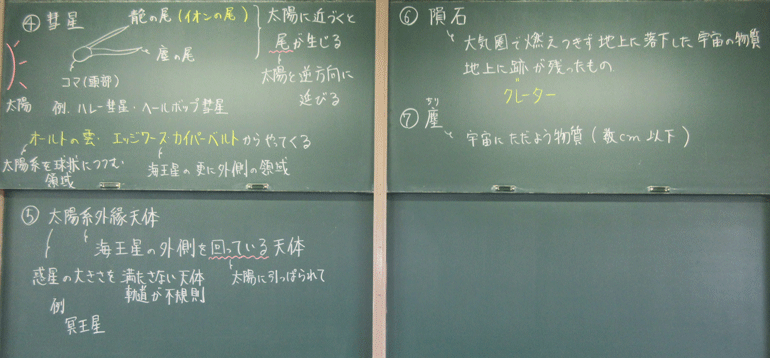 ④ 彗星
龍の尾(イオンの尾)
塵の尾
コマ(頭部)
太陽
太陽に近づくと
尾が生じる
太陽と逆方向に
延びる
例. ハレー彗星・ヘールボップ彗星
オールトの雲・エッジワース・カイパーベルトからやってくる
太陽系を球状につつむ
領域
海王星の更に外側の領域
⑤ 太陽系外縁天体
海王星の外側を回っている天体
惑星の大きさを満たさない天体
軌道が不規則
太陽に引っぱられて
例
冥王星
⑥ 隕石
大気圏で燃えつきず地上に落下した宇宙の物質
地上に跡が残ったもの
クレーター
ちり
⑦ 塵
宇宙にただよう物質(数cm以下)